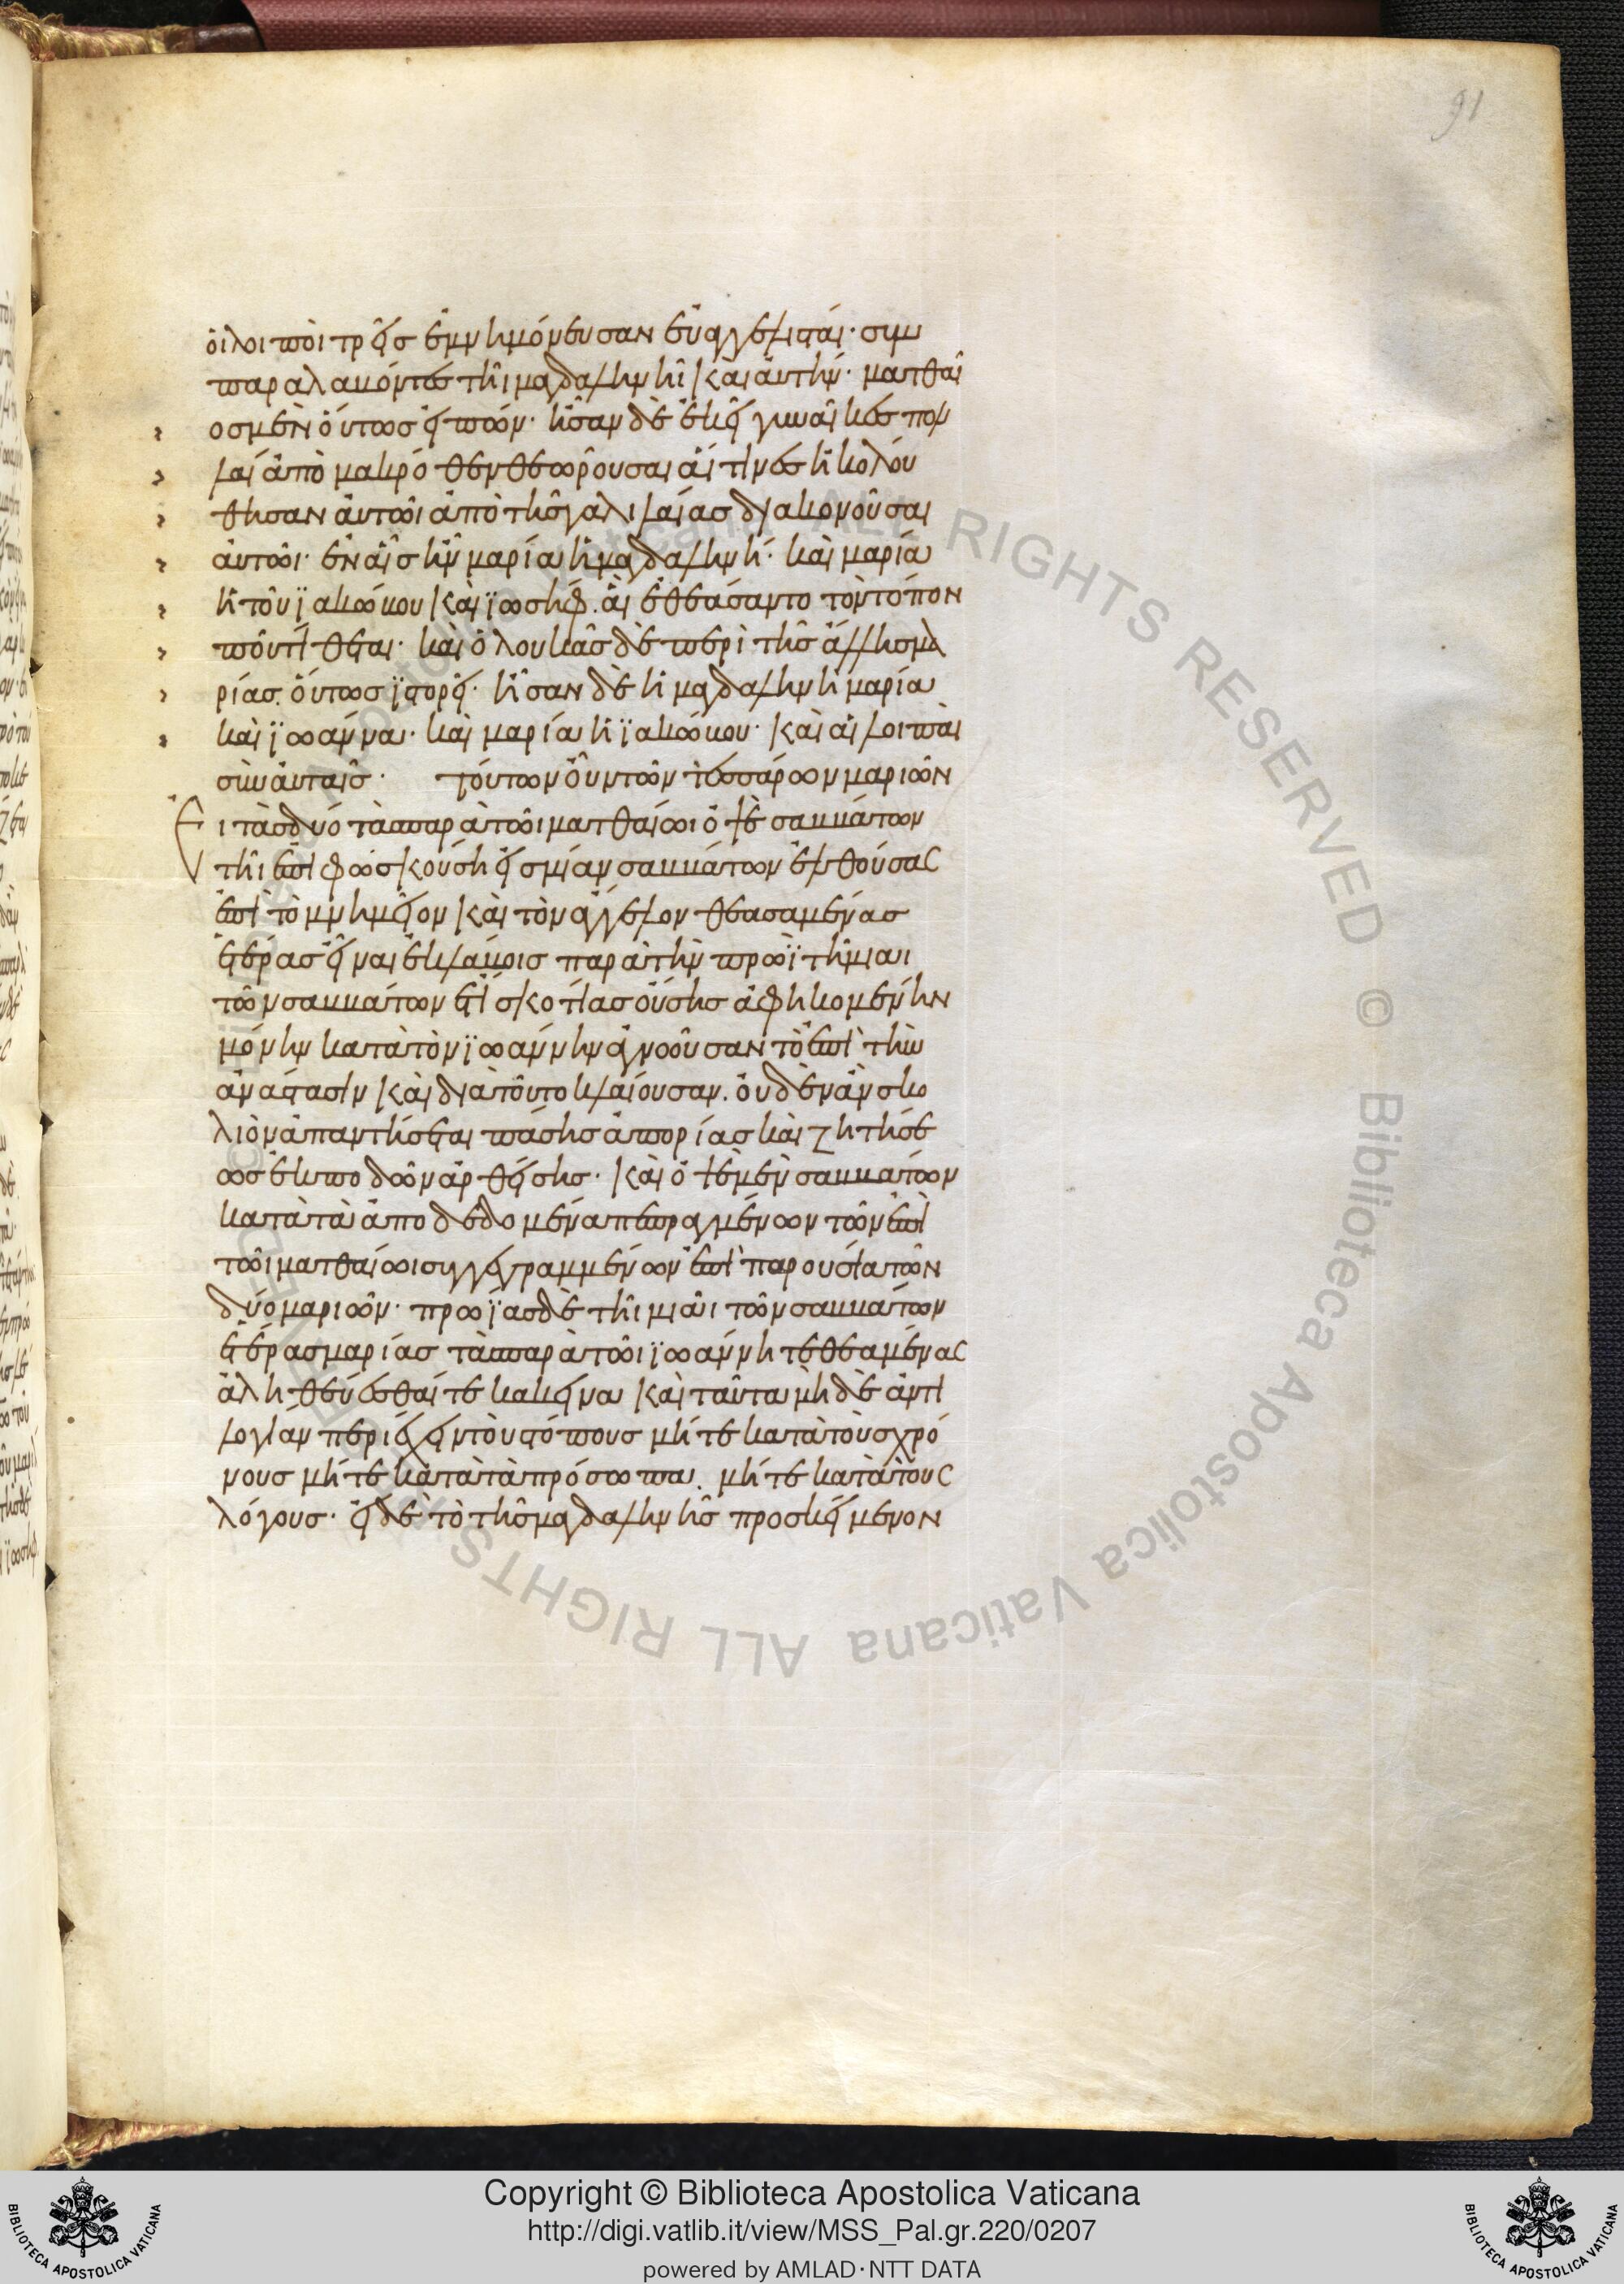 91
οἱ λοιποὶ τρεῖς ἐμνημόνευσαν εὐαγγελισταί· συμ
παραλαβόντες τῆι μαγδαληνῆι καὶ αὐτήν· ματθαῖ
ος μὲν οὕτως εἰπών· ἦσαν δὲ ἐκεῖ γυναῖκες πολ
λαὶ ἀπὸ μακρόθεν θεωροῦσαι αἵτινες ἠκολού
θησαν αὐτῶι ἀπὸ τῆς γαλιλαίας διακονοῦσαι
αὐτῶι· ἐν αἷς ἦν μαρία ἡ μαγδαληνή· καὶ μαρία
ἡ τοῦ ϊακώβου καὶ ϊωσήφ. αἳ ἐθεάσαντο τὸν τόπον
ποῦ τίθεται· καὶ ὁ λουκᾶς δὲ περὶ τῆς ἄλλης μα
ρίας. οὕτως ϊστορεῖ· ἦσαν δὲ ἡ μαγδαληνὴ μαρία
καὶ ϊωάννα· καὶ μαρία ἡ ϊακώβου· καὶ αἱ λοιπαὶ
σὺν αὐταῖς· τούτων οὖν τῶν τεσσάρων μαριῶν
Ει τὰς δύο τὰς παρὰ τῶι ματθαίωι ὀψὲ σαββάτων
τῆι ἐπιφωσκούση εἰς μίαν σαββάτων ἐλθούσας
ἐπὶ τὸ μνημεῖον καὶ τὸν ἄγγελον θεασαμένας
ἑτέρας εἶναι ἐκλάβοις παρὰ τὴν πρωῒ τῆι μιᾶι
τῶν σαββάτων ἔτι σκοτίας οὔσης ἀφηκομένην
μόνην κατὰ τὸν ϊωάννην ἀγνοοῦσαν τὸ ἐπὶ τὴν
ἀνάστασιν καὶ διατοῦτο κλαίουσαν. οὐδὲν ἂν σκο
λιὸν ἀπαντήσεται πάσης ἀπορίας καὶ ζητήσε
ως ἐκποδῶν ἀρθείσης· καὶ ὀψὲ μὲν σαββάτων
κατὰ τὰ ἀποδεδομένα πεπραγμένων τῶν ἐπὶ
τῶι ματθαίωι συγγεγραμμένων ἐπὶ παρουσία τῶν
δύο μαριῶν· πρωΐας δὲ τῆι μιᾶι τῶν σαββάτων
ἑτέρας μαρίας τὰς παρὰ τῶι ϊωάννη τεθεαμένας
ἀληθεύεσθαί τε κακεῖνα καὶ ταῦτα μηδὲ ἀντι
λογίαν περιέχειν τοὺς τόπους μήτε κατὰ τοὺς χρό
νους μήτε κατὰ τὰ πρόσωπα. μήτε κατὰ τοὺς
λόγους· εἰ δὲ τὸ τῆς μαγδαληνῆς προσκείμενον
Copyright © Biblioteca Apostolica Vaticana
http://digi.vatlib.it/view/MSS_Pal.gr.220/0207
powered by AMLAD·NTT DATA